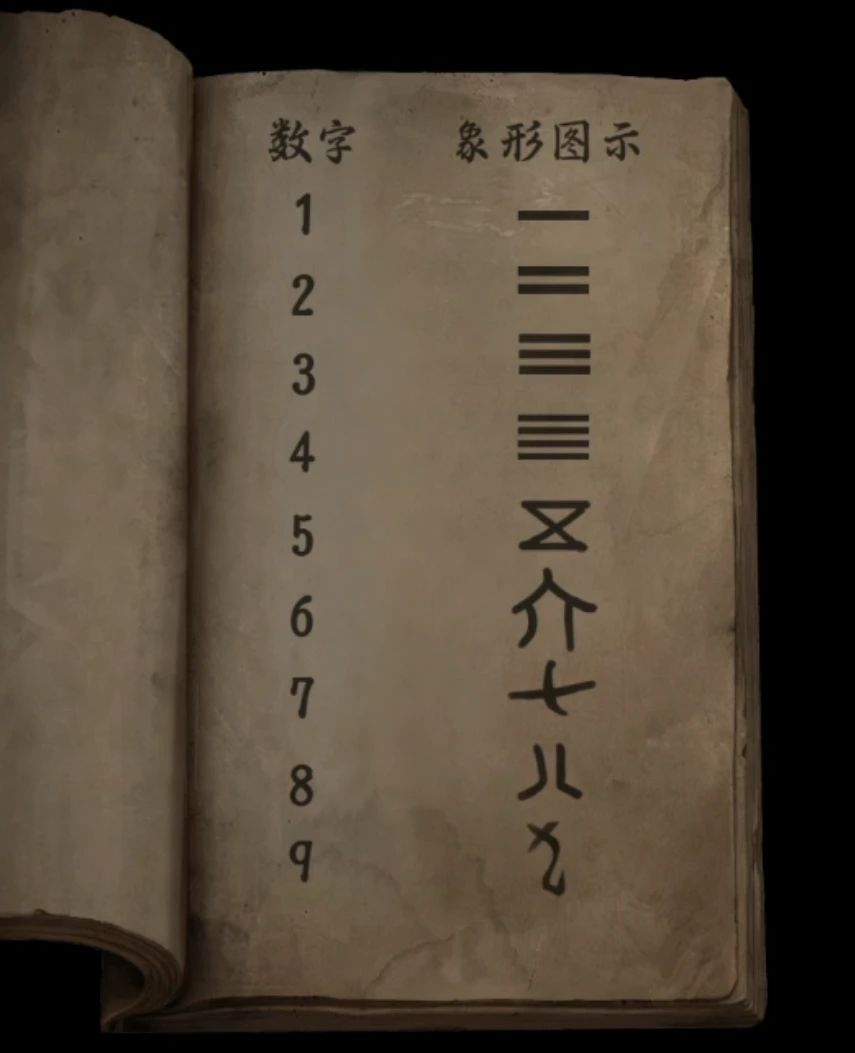 数字 象形图示
1 一
2 二
3 三
4 亖
5 𠄡
6 介
7 七
8 八
9 九